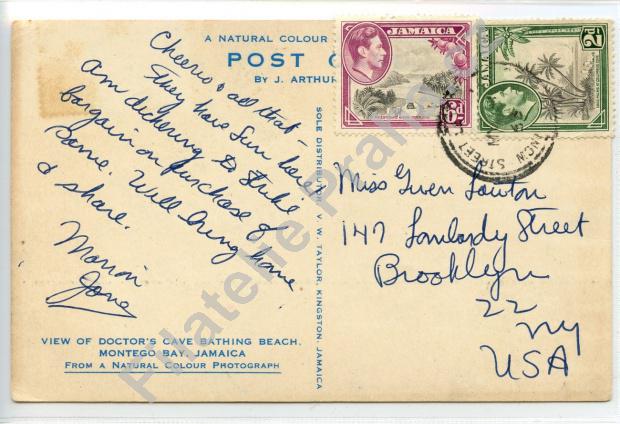 A NATURAL COLOUR
POST C
BY J. ARTHUR
Cheerio & all that -
They have Sun here
am dickering to strike
bargain on purchase of
same. Will bring home
& share.
Marion
Jane
VIEW OF DOCTOR'S CAVE BATHING BEACH.
MONTEGO BAY, JAMAICA
FROM A NATURAL COLOUR PHOTOGRAPH
SOLE DISTRIBUTOR V. W. TAYLOR, KINGSTON, JAMAICA
JAMAICA
6d
JAMAICA
2d
STREET
Miss Gwen Lawton
147 Lombardy Street
Brooklyn
22
NY
USA
Filatelie Praha